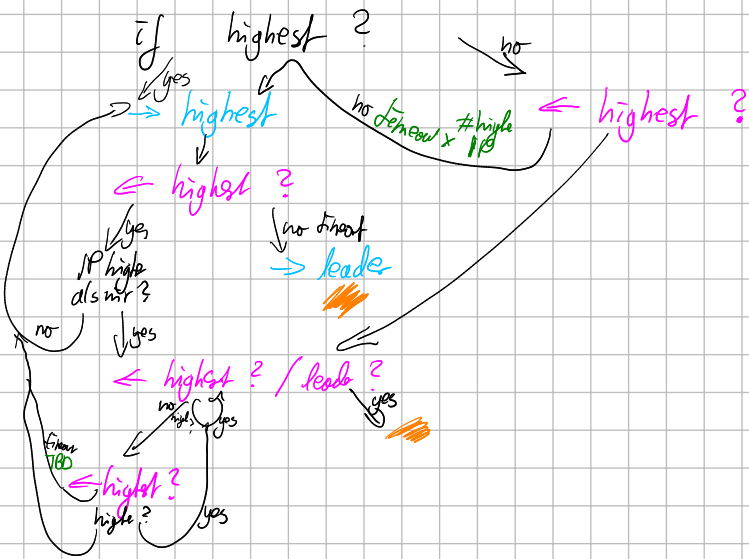 if highest ?
no
yes
→ highest
no timeout x #higher IPs
← highest ?
← highest ?
yes
no timeout
IP higher
als mir ?
→ leader
no
yes
← highest ? / leader ?
no
yes
yes
TBD
← highest ?
higher ?
yes